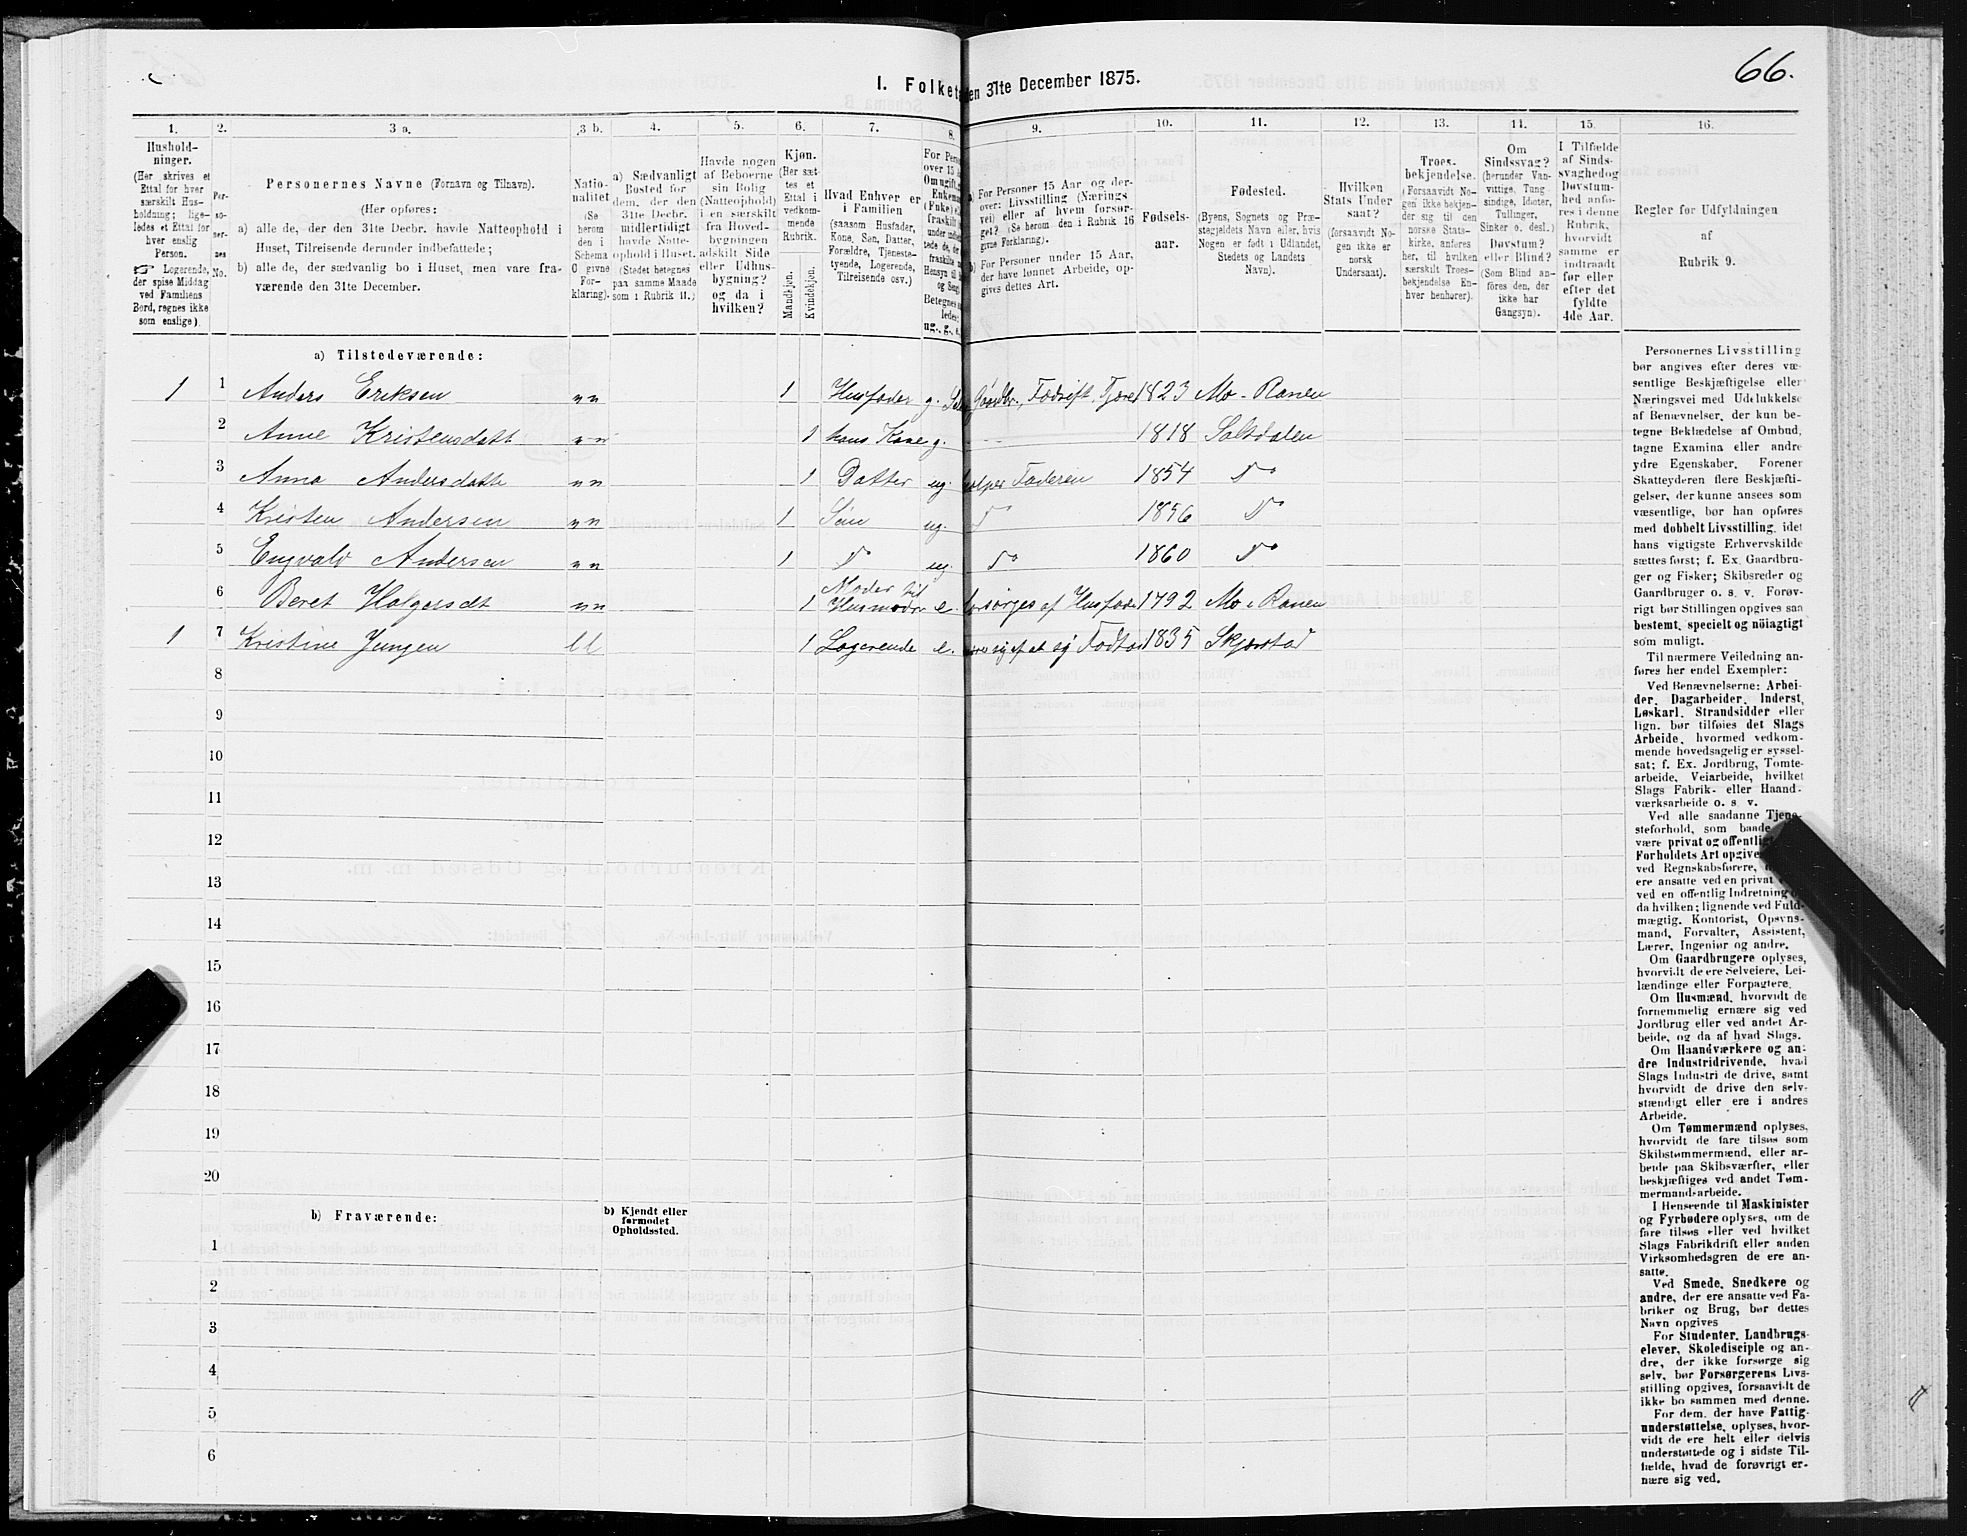 66.
I. Folket en 31te December 1875.
1. 2. 3 a. 3 b. 4. 5. 6. 7. 8. 9. 10. 11. 12. 13. 14. 15. 16.
Hushold-
ninger.
(Her skrives et
Ettal for hver
særskilt Hus-
holdning; lige-
ledes et Ettal for
hver enslig
Person.
☞ Logerende,
der spise Middag
ved Familiens
Bord, regnes ikke
som enslige).
Per-
so-
ner-
nes
No.
Personernes Navne (Fornavn og Tilnavn).
(Her opføres:
a) alle de, der den 31te Decbr. havde Natteophold i
Huset, Tilreisende derunder indbefattede;
b) alle de, der sædvanlig bo i Huset, men vare fra-
værende den 31te December.
Natio-
nalitet
(Se
herom
den i
Schema
C givne
For-
klaring).
a) Sædvanligt
Bosted for
dem, der den
31te Decbr.
midlertidigt
havde Natte-
ophold i Huset.
(Stedet betegnes
paa samme Maade
som i Rubrik 11.)
Havde nogen
af Beboerne
sin Bolig
(Natteophold)
i en særskilt
fra Hoved-
bygningen
adskilt Side
eller Udhus-
bygning?
og da i
hvilken?
Kjøn.
(Her sæt-
tes et
Ettal i
vedkom-
mende
Rubrik.
Mandkjøn.
Kvindekjøn.
Hvad Enhver er
i Familien
(saasom Husfader,
Kone, Søn, Datter,
Forældre, Tjeneste-
tyende, Logerende,
Tilreisende osv.)
For Pers
over 15
Om ugift,
Enkema
(Fuke) e
fraskilt
under indbe
tede de, de
fraskilte
Hensyn til
og Seng
Betegnes
ledes:
ug., g., e.
a) For Personer 15 Aar og der-
over: Livsstilling (Nærings
vei) eller af hvem forsør-
get? (Se herom den i Rubrik 16
givne Forklaring).
b) For Personer under 15 Aar,
der have lønnet Arbeide, op-
gives dettes Art.
Fødsels-
aar.
Fødested.
(Byens, Sognets og Præ-
stegjeldets Navn eller, hvis
Nogen er født i Udlandet,
Stedets og Landets
Navn).
Hvilken
Stats Under
saat?
(forsaavidt No-
gen ikke er
norsk
Undersaat).
Troes-
bekjendelse.
(Forsaavidt No-
gen ikke bekjen-
der sig til den
norske Stats-
kirke, anføres
her, til hvilken
særskilt Troes-
bekjendelse En-
hver henhører).
Om
Sindssvag?
(herunder Van-
vittige, Tung
sindige, Idioter,
Tullinger,
Sinker o. desl.)
Døvstum?
eller Blind?
(Som Blind an-
føres den, der
ikke har
Gangsyn).
I Tilfælde
af Sinds-
svaghed og
Døvstum-
hed anfø-
res i denne
Rubrik,
hvorvidt
samme er
indtraadt
før eller
efter det
fyldte
4de Aar.
Regler for Udfyldningen
af
Rubrik 9.
a) Tilstedeværende:
1 1 Anders Eriksen nn 1 Husfader g. Gaardbr., Fædrift, 1823 Mo - Ranen
2 Anne Kristensdatt nn 1 hans Kone g. 1818 Saltdalen
3 Anna Andersdatte nn 1 Datter ug. hjælper Faderen 1854 Do
4 Kristen Andersen nn 1 Søn ug. Do 1856 Do
5 Engvald Andersen nn 1 Do ug. Do 1860 Do
6 Beret Holgersdt nn 1 Moder til Husmodr e. forsørges af Husfade 1792 Mo i Ranen
1 7 Kristine Jungen ll 1 Logerende e. sig af at sy 1835 Skjerstad
8
9
10
11
12
13
14
15
16
17
18
19
20
b) Fraværende:
b) Kjendt eller
formodet
Opholdssted.
1
2
3
4
5
6
Personernes Livsstilling
bør angives efter deres væ-
sentlige Beskjæftigelse eller
Næringsvei med Udelukkelse
af Benævnelser, der kun be-
tegne Beklædelse af Ombud,
tagne Examina eller andre
ydre Egenskaber. Forener
Skatteyderen flere Beskjæfti-
gelser, der kunne ansees som
væsentlige, bør han opføres
med dobbelt Livsstilling, idet
hans vigtigste Erhvervskilde
sættes først; f. Ex. Gaardbru-
ger og Fisker; Skibsreder og
Gaardbruger o. s. v. Forøv-
rigt bør Stillingen opgives saa
bestemt, specielt og nöiagtigt
som muligt.
Til nærmere Veiledning an-
føres her endel Exempler:
Ved Benævnelserne: Arbei-
der, Dagarbeider, Inderst,
Løskarl, Strandsidder eller
lign. bør tilføies det Slags
Arbeide, hvormed vedkom-
mende hovedsagelig er syssel-
sat; f. Ex. Jordbrug, Tomte-
arbeide, Veiarbeide, hvilket
Slags Fabrik- eller Haand-
værksarbeide o. s. v.
Ved alle saadanne Tjene-
steforhold, som baade
være privat og offentlig
Forholdets Art opgive
ved Regnskabsførere,
ere ansatte ved en privat
ved en offentlig Indretning
da hvilken; lignende ved Fuld-
mægtig, Kontorist, Opsyns-
mand, Forvalter, Assistent,
Lærer, Ingeniør og andre.
Om Gaardbrugere oplyses,
hvorvidt de ere Selveiere, Lei-
lændinge eller Forpagtere.
Om Husmænd, hvorvidt de
fornemmelig ernære sig ved
Jordbrug eller ved andet Ar-
beide, og da af hvad Slags.
Om Haandværkere og an-
dre Industridrivende, hvad
Slags Industri de drive, samt
hvorvidt de drive den selv-
stændigt eller ere i andres
Arbeide.
Om Tømmermænd oplyses,
hvorvidt de fare tilsøs som
Skibstømmermænd, eller ar-
beide paa Skibsværfter, eller
beskjæftiges ved andet Tøm-
mermandsarbeide.
I Henseende til Maskinister
og Fyrbødere oplyses, om de
fare tilsøs eller ved hvilket
Slags Fabrikdrift eller anden
Virksomhedsgren de ere an-
satte.
Ved Smede, Snedkere og
andre, der ere ansatte ved Fa-
briker og Brug, bør dettes
Navn opgives
For Studenter, Landbrugs-
elever, Skoledisciple og an-
dre, der ikke forsørge sig
selv, bør Forsørgerens Livs-
stilling opgives, forsaavidt de
ikke bo sammen med denne.
For dem, der have Fattig-
understøttelse, oplyses, hvor-
vidt de ere helt eller delvis
understøttede og i sidste Til-
fælde, hvad de forøvrigt er-
nære sig ved.